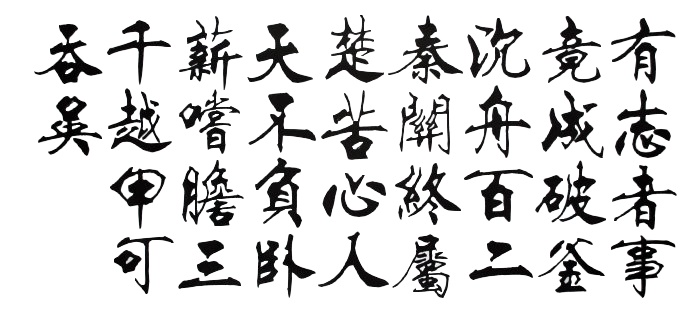 有志者事
竟成破釜
沈舟百二
秦關終屬
楚苦心人
天不負臥
薪嚐膽三
千越甲可
吞吳